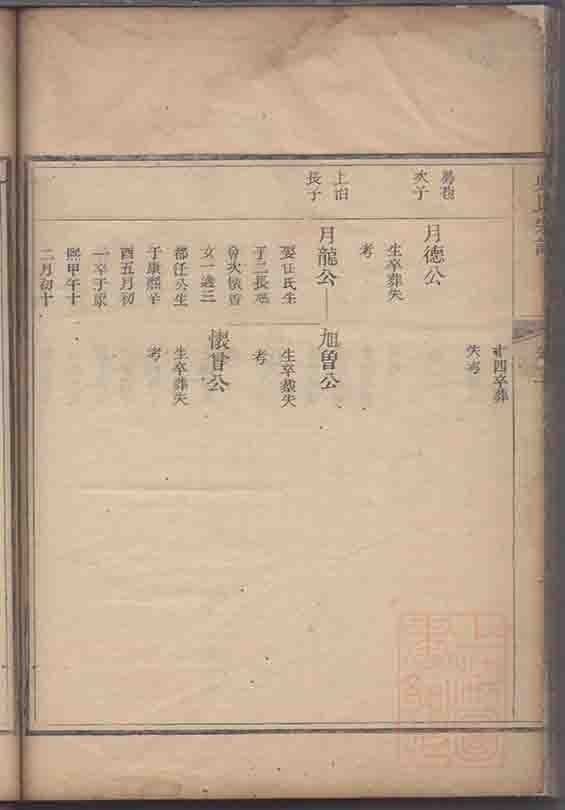 十四卒葬
失考
次子
月德公
生卒葬失
考
上治
長子
月龍公
旭曾公
生卒葬失
考
娶任氏生
子二長旭
曾次懷曾
女一適三
都任公生
于康熙辛
酉五月初
一卒于康
熙甲午十
二月初十
懷曾公
生卒葬失
考